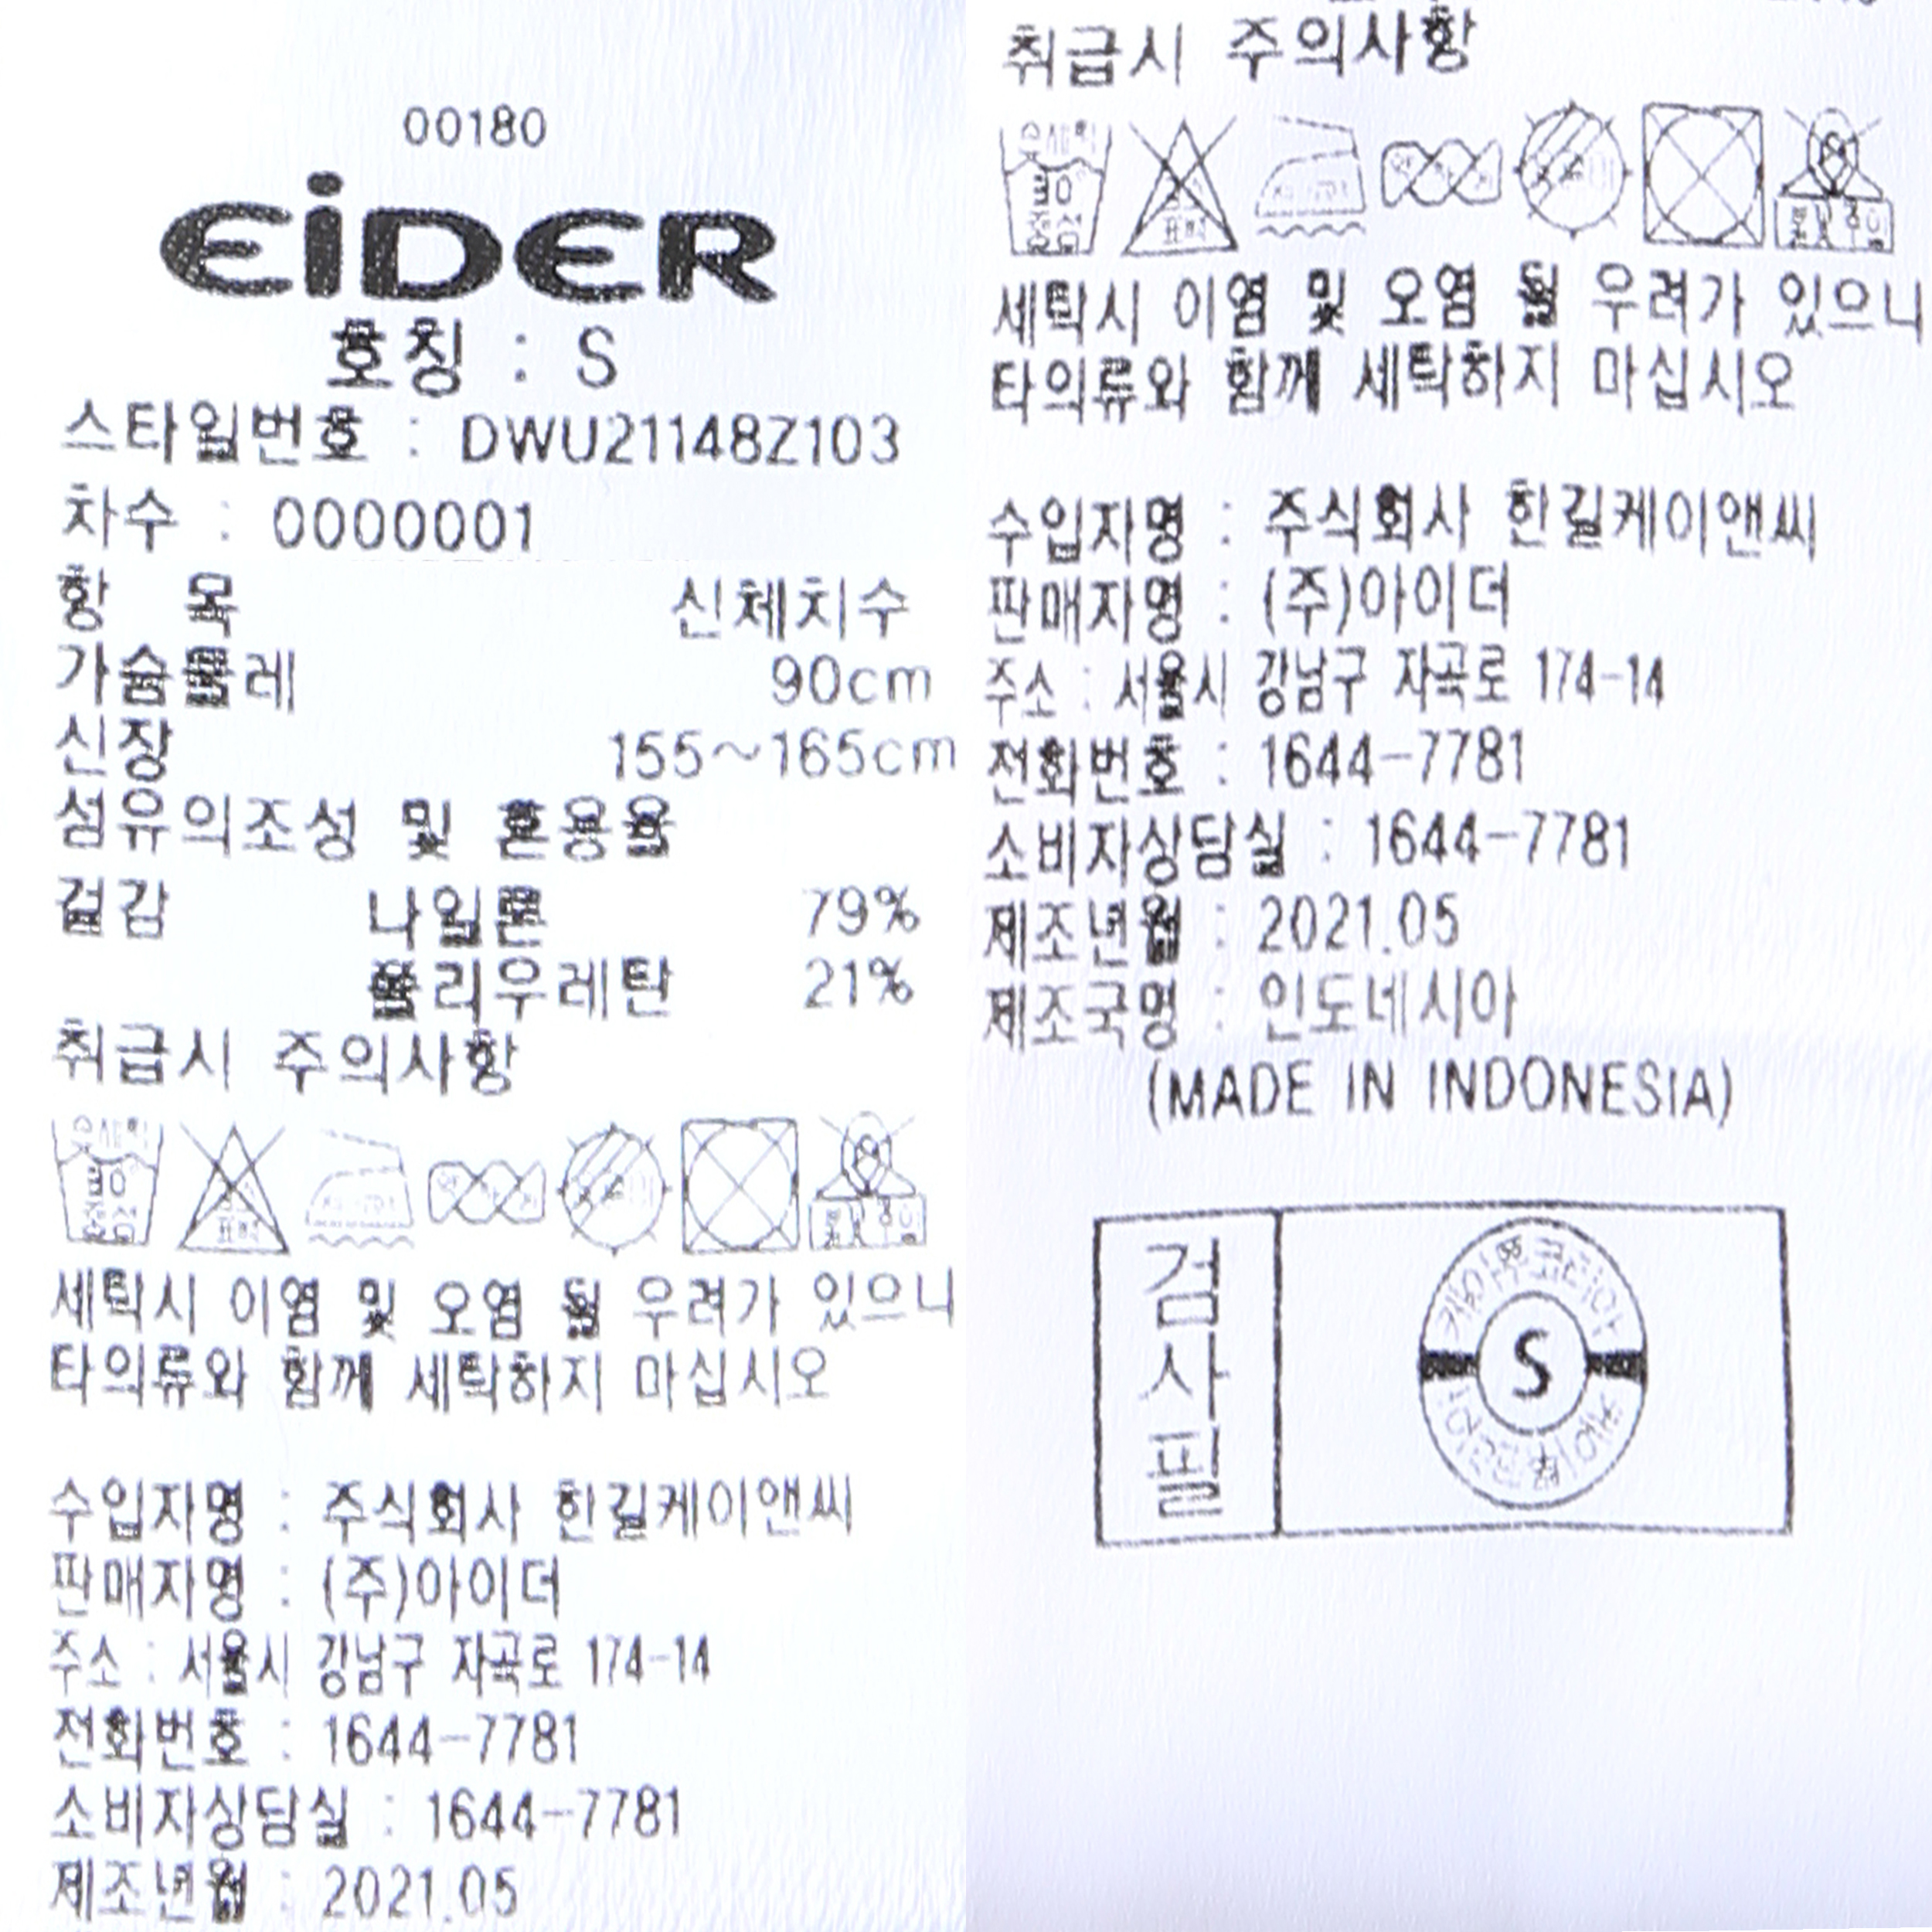 00180
EiDER
호칭 : S
스타일번호 : DWU21148Z103
차수 : 0000001
항 목 신체치수
가슴둘레 90cm
신장 155~165cm
섬유의조성 및 혼용율
겉감 나일론 79%
폴리우레탄 21%
취급시 주의사항
세탁시 이염 및 오염 될 우려가 있으니
타의류와 함께 세탁하지 마십시오
수입자명 : 주식회사 한길케이앤씨
판매자명 : (주)아이더
주소 : 서울시 강남구 자곡로 174-14
전화번호 : 1644-7781
소비자상담실 : 1644-7781
제조년월 : 2021.05
취급시 주의사항
세탁시 이염 및 오염 될 우려가 있으니
타의류와 함께 세탁하지 마십시오
수입자명 : 주식회사 한길케이앤씨
판매자명 : (주)아이더
주소 : 서울시 강남구 자곡로 174-14
전화번호 : 1644-7781
소비자상담실 : 1644-7781
제조년월 : 2021.05
제조국명 : 인도네시아
(MADE IN INDONESIA)
검사필
S